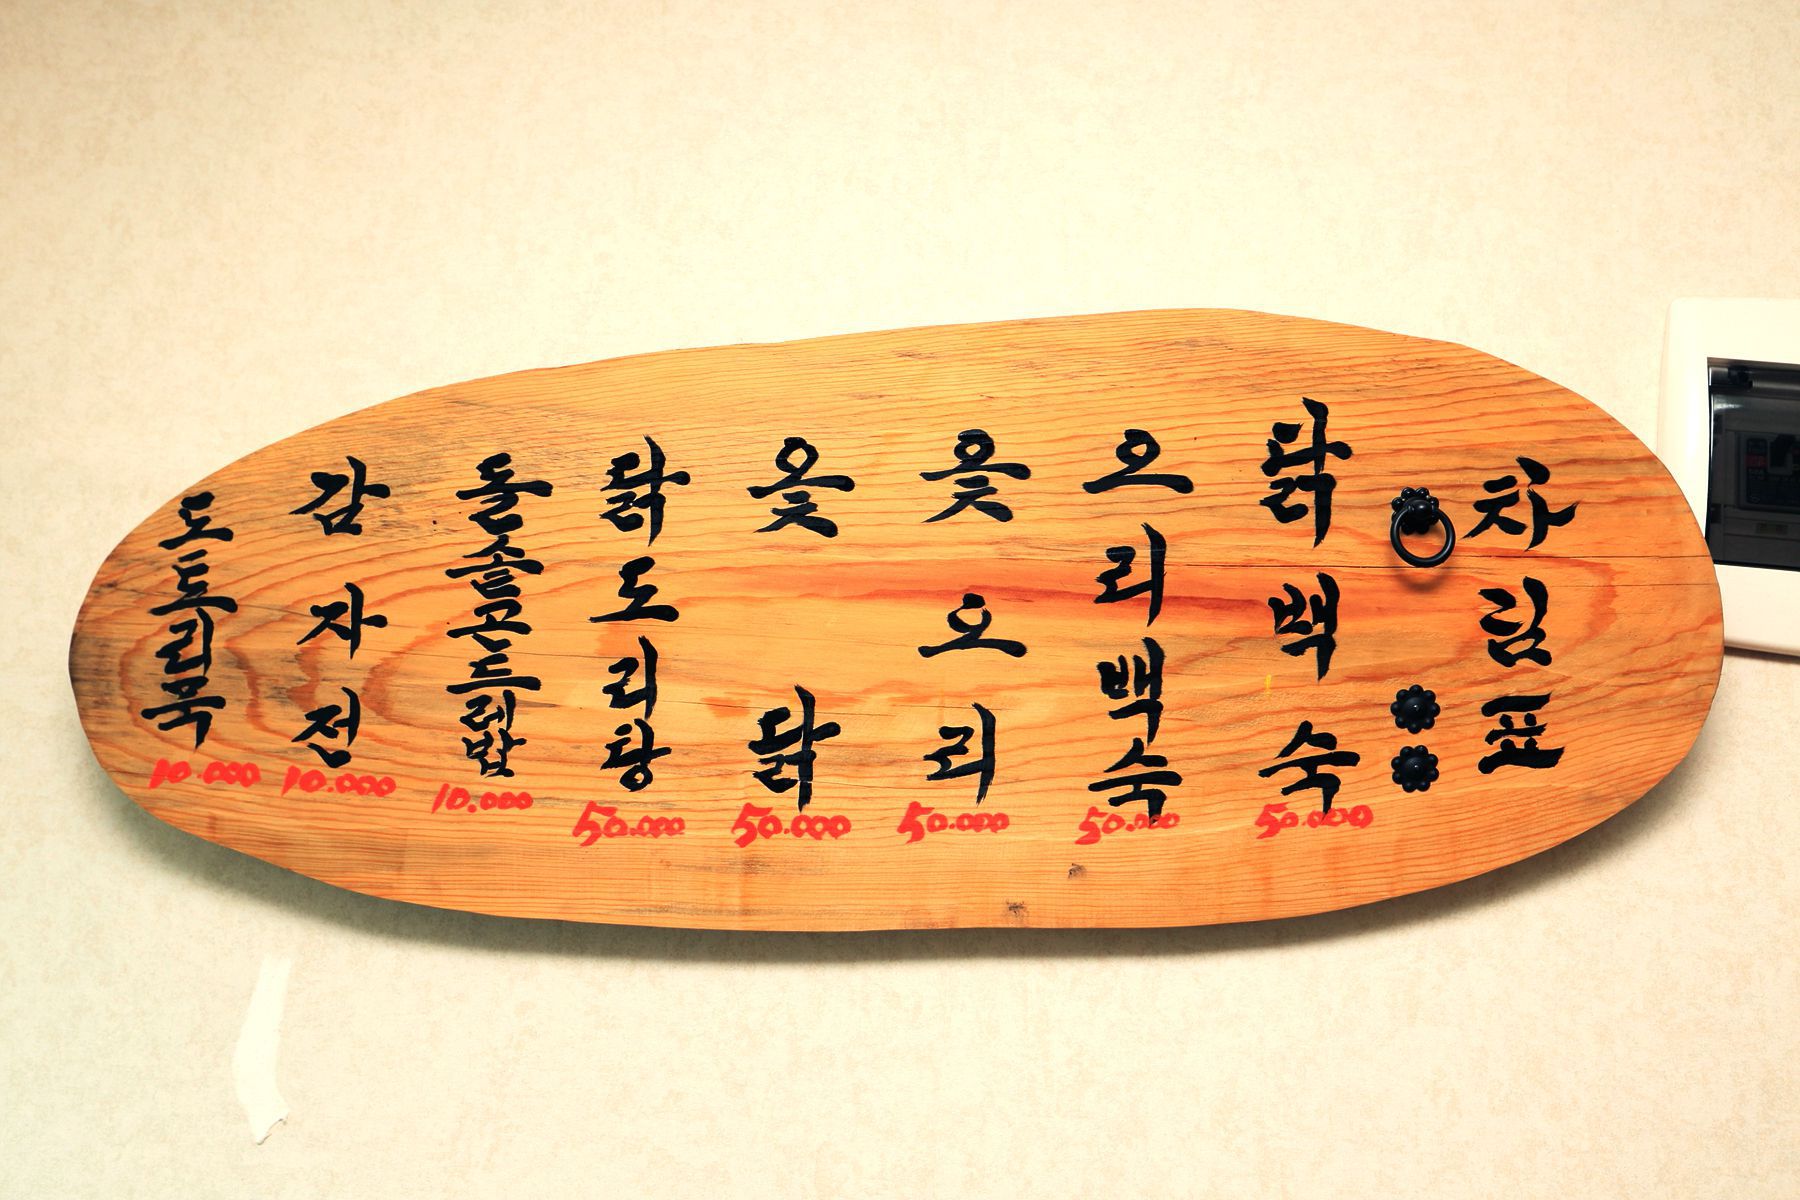 차림표
닭백숙
50.000
오리백숙
50.000
옻오리
50.000
옻닭
50.000
닭도리탕
50.000
돌솥곤드레밥
10.000
감자전
10.000
도토리묵
10.000